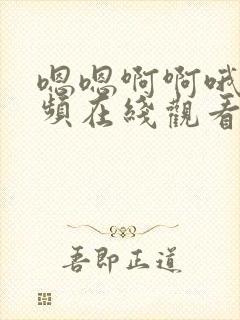 嗯嗯啊啊哦
頻在綫觀看
吾即正道